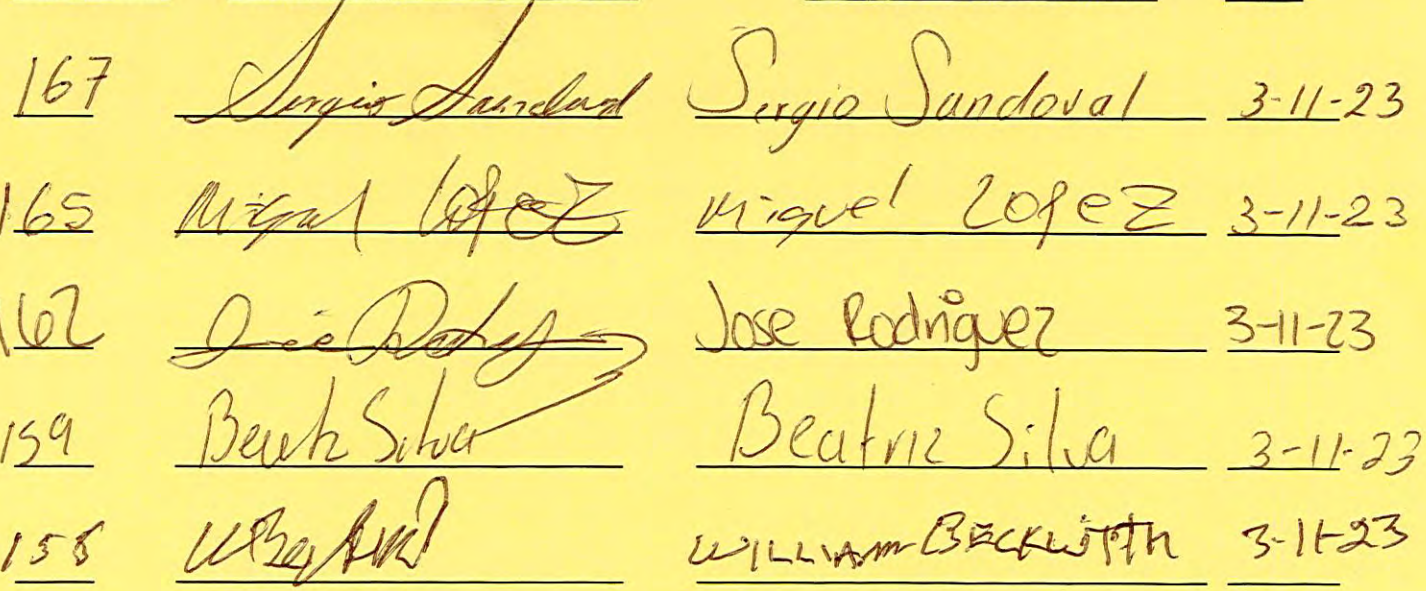 167 Sergio Sandoval Sergio Sandoval 3-11-23
165 Miguel Lopez Miguel Lopez 3-11-23
162 Jose Rodriguez 3-11-23
159 Beatriz Silva Beatriz Silva 3-11-23
158 WILLIAM BECKWITH 3-11-23